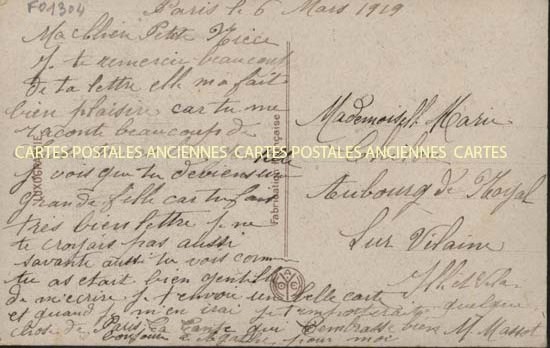 F01304
Paris le 6 Mars 1919
Ma Chien Petite Niece
Je te remercie beaucoup
de ta lettre elle m'a fait
bien plaisir car tu me
raconte beaucoup de
CARTES POSTALES ANCIENNES CARTES POSTALES ANCIENNES CARTES
je vois que tu deviens un
grande fille car tu fais
très bien lettre je ne
te croyais pas aussi
savante aussi tu vois comm
tu as était bien gentille
de m'écrire je t'envoi un belle carte
et quand je m'en irai je t'emporterait quelque
chose de Paris La Tante qui t'embrasse bien M. Massot
bonjour a pour moi
Fabrication Française
Mademoiselle Marie
Aubourg de Noyal
Sur Vilaine
Ille et Vila